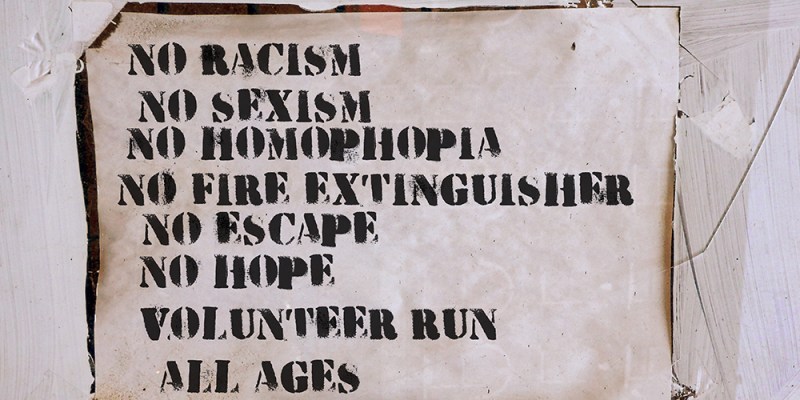 NO RACISM
NO SEXISM
NO HOMOPHOPIA
NO FIRE EXTINGUISHER
NO ESCAPE
NO HOPE
VOLUNTEER RUN
ALL AGES